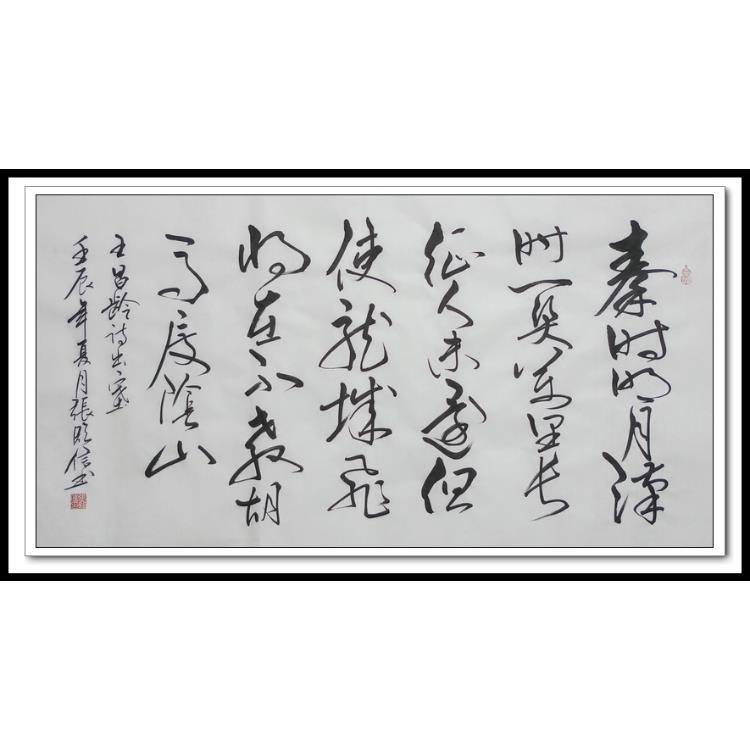 秦时明月漢
时関万里长
征人未還但
使龍城飛
将在不教胡
马度陰山
王昌龄诗出塞
壬辰年夏月張明信书